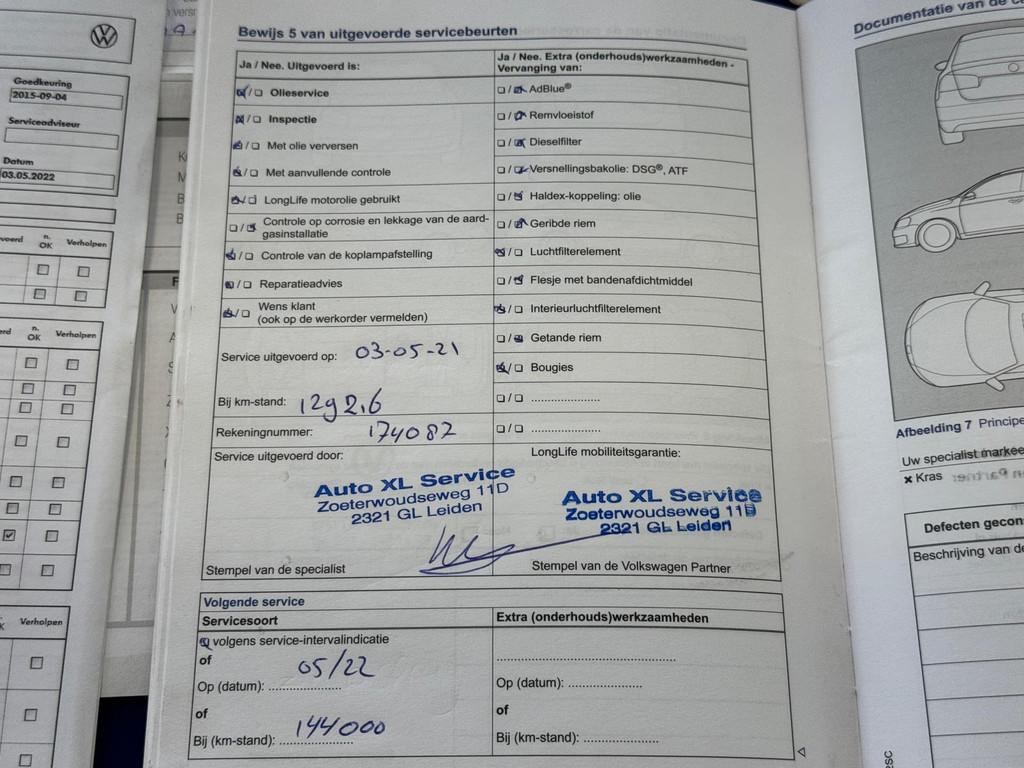 Goedkeuring
2015-09-04
Serviceadviseur
Datum
03.05.2022
n.
OK
Verholpen
n.
OK
Verholpen
Verholpen
Bewijs 5 van uitgevoerde servicebeurten
Ja / Nee. Uitgevoerd is:
Olieservice
Inspectie
Met olie verversen
Met aanvullende controle
LongLife motorolie gebruikt
Controle op corrosie en lekkage van de aard-
gasinstallatie
Controle van de koplampafstelling
Reparatieadvies
Wens klant
(ook op de werkorder vermelden)
Service uitgevoerd op: 03-05-21
Bij km-stand: 1292.6
Rekeningnummer: 174087
Service uitgevoerd door:
Auto XL Service
Zoeterwoudseweg 11D
2321 GL Leiden
Stempel van de specialist
Ja / Nee. Extra (onderhouds)werkzaamheden -
Vervanging van:
AdBlue®
Remvloeistof
Dieselfilter
Versnellingsbakolie: DSG®, ATF
Haldex-koppeling: olie
Geribde riem
Luchtfilterelement
Flesje met bandenafdichtmiddel
Interieurluchtfilterelement
Getande riem
Bougies
LongLife mobiliteitsgarantie:
Auto XL Service
Zoeterwoudseweg 11D
2321 GL Leiden
Stempel van de Volkswagen Partner
Volgende service
Servicesoort
volgens service-intervalindicatie
of
Op (datum): 05/22
of
Bij (km-stand): 144000
Extra (onderhouds)werkzaamheden
Op (datum):
of
Bij (km-stand):
Documentatie van de
Afbeelding 7 Principe
Uw specialist markee
× Kras
Defecten gecon
Beschrijving van de